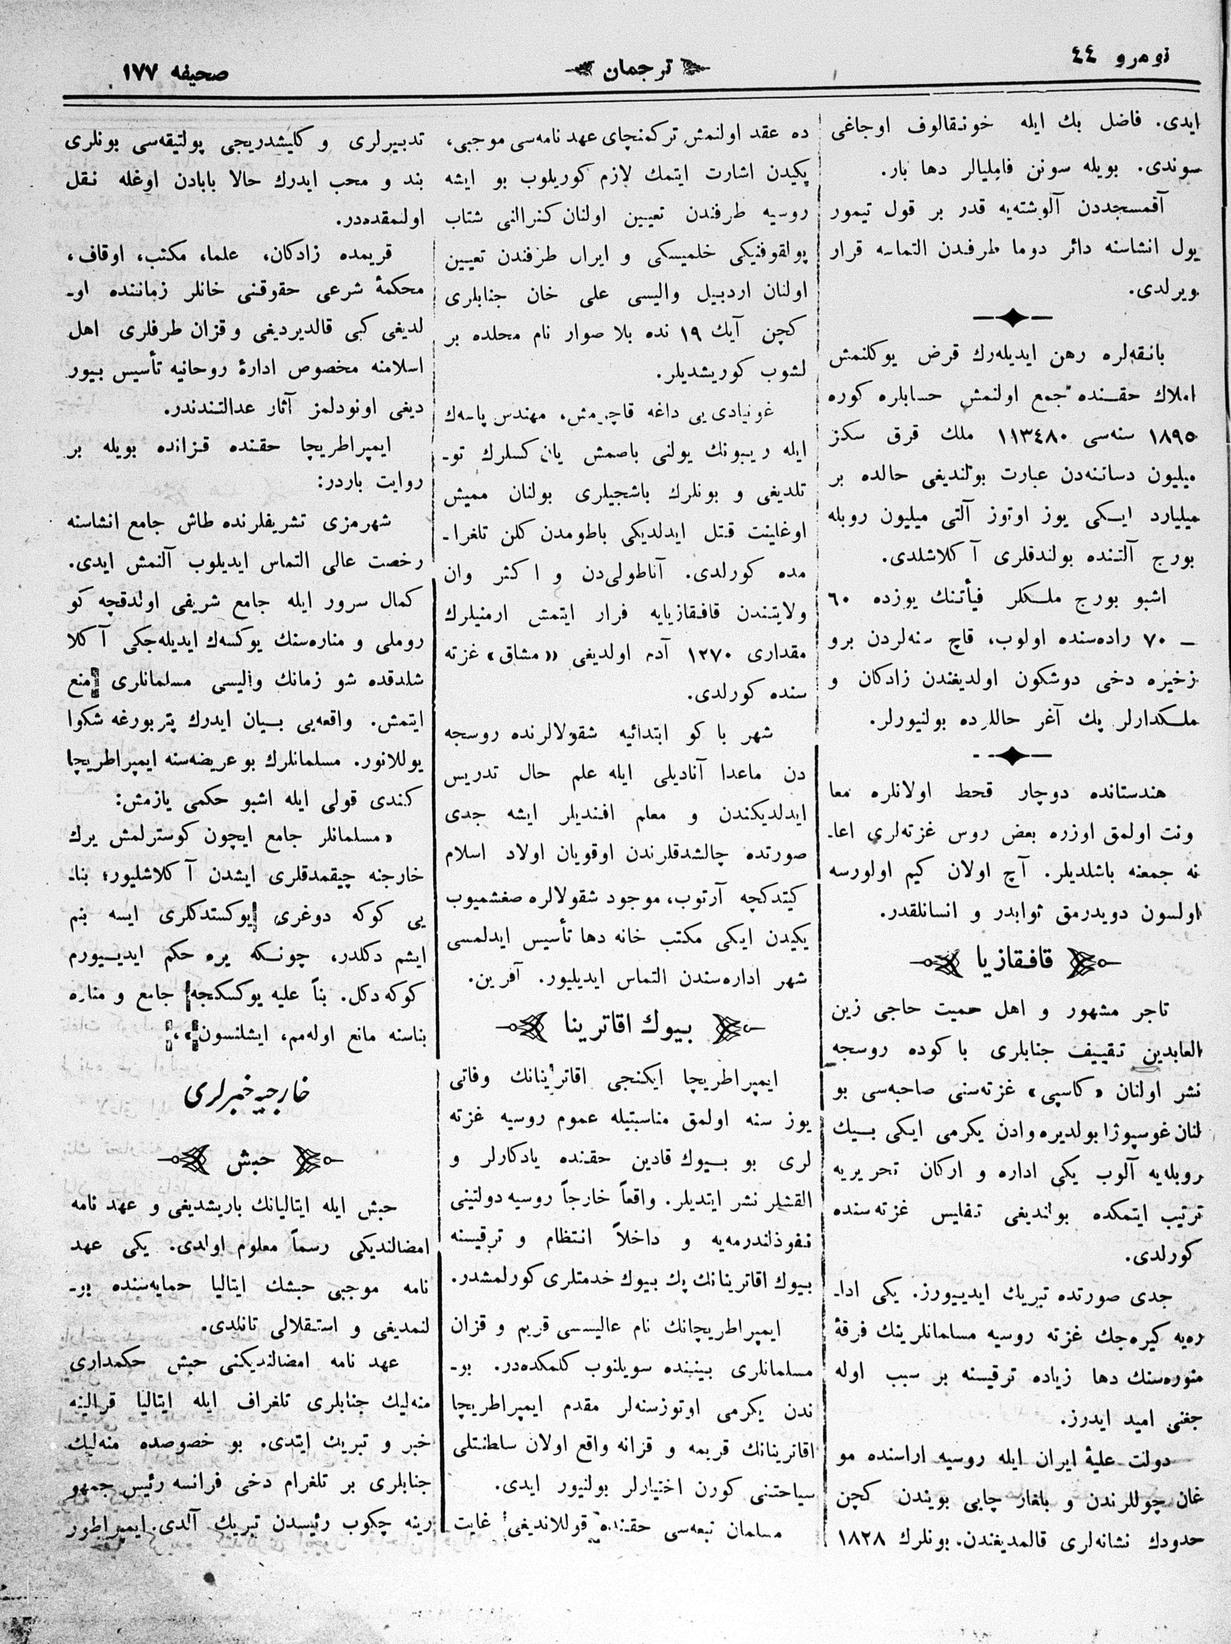 نومرو ٤٤
ترجمان
صحیفه ١٧٧
ایدی. فاضل بك ایله خونقالوف اوجاغی
سوندی. بویله سونن فامیلیالر دها بار.
آقمسجددن آلوشته‌یه قدر بر قول تیمور
یول انشاسنه دائر دوما طرفدن التماسه قرار
ویرلدی.
بانقه‌لره رهن ایدیله‌رك قرض یوكلنمش
املاك حقنده جمع اولنمش حسابلره كوره
١٨٩٥ سنه‌سی ١١٣٤٨٠ ملك قرق سكز
میلیون دساتنه‌دن عبارت بولندیغی حالده بر
میلیارد ایكی یوز اوتوز آلتی میلیون روبله
بورج آلتنده بولندقلری آكلاشلدی.
اشبو بورج ملكلر فیأتنك یوزده ٦٠
ــ ٧٠ راده‌سنده اولوب، قاچ سنه‌لردن برو
زخیره دخی دوشكون اولدیغندن زادكان و
ملكدارلر پك آغر حاللرده بولنیورلر.
هندستانده دوچار قحط اولانلره معا
ونت اولمق اوزره بعض روس غزته‌لری اعا۔
نه جمعنه باشلدیلر. آچ اولان كیم اولورسه
اولسون دویدرمق ثوابدر و انسانلقدر.
قافقازیا
تاجر مشهور و اهل حمیت حاجی زین
العابدین تقییف جنابلری باكوده روسجه
نشر اولنان «كاسپی» غزته‌سنی صاحبه‌سی بو
لنان غوسپوژا بولدیره‌وادن یكرمی ایكی بیك
روبله‌یه آلوب یكی اداره و اركان تحریریه
ترتیب ایتمكده بولندیغی تفلیس غزته‌سنده
كورلدی.
جدی صورتده تبریك ایدییورز. یكی ادا۔
ره‌یه كیره‌جك غزته روسیه مسلمانلرینك فرقهٔ
منوره‌سنك دها زیاده ترقیسنه بر سبب اوله
جغنی امید ایدرز.
دولت علیهٔ ایران ایله روسیه اراسنده مو
غان چوللرندن و بلغار چایی بویندن كچن
حدودك نشانه‌لری قالمدیغندن، بونلرك ١٨٢٨
ده عقد اولنمش تركمنچای عهد نامه‌سی موجبی،
یكیدن اشارت ایتمك لازم كوریلوب بو ایشه
روسیه طرفندن تعیین اولنان كنرالنی شتاب
پولقوفنیكی خلمیسكی و ایران طرفندن تعیین
اولنان اردبیل والیسی علی خان جنابلری
كچن آیك ١٩ نده بلا صوار نام محلده بر
لشوب كوریشدیلر.
غونیادی یی داغه قاچیرمش، مهندس پاسه‌ك
ایله ریبونك یولنی باصمش یان كسلرك تو۔
تلدیغی و بونلرك باشجیلری بولنان ممیش
اوغلینت قتل ایدلدیكی باطومدن كلن تلغرا۔
مده كورلدی. آناطولی‌دن و اكثر وان
ولایتندن قافقازیایه فرار ایتمش ارمنیلرك
مقداری ١٢٧٠ آدم اولدیغی «مشاق» غزته
سنده كورلدی.
شهر باكو ابتدائیه شقولالرنده روسجه
دن ماعدا آنادیلی ایله علم حال تدریس
ایدلدیكندن و معلم افندیلر ایشه جدی
صورتده چالشدقلرندن اوقویان اولاد اسلام
كیتدكچه آرتوب، موجود شقولالره صغشمیوب
یكیدن ایكی مكتب خانه دها تأسیس ایدلمسی
شهر اداره‌سندن التماس ایدیلیور. آفرین.
بیوك اقاترینا
ایمپراطریچا ایكنجی اقاترینانك وفاتی
یوز سنه اولمق مناسبتیله عموم روسیه غزته
لری بو بیوك قادین حقنده یادكارلر و
القشلر نشر ایتدیلر. واقعاً خارجاً روسیه دولتینی
نفوذلندرمه‌یه و داخلاً انتظام و ترقیسنه
بیوك اقاترینانك پك بیوك خدمتلری كورلمشدر.
ایمپراطریچانك نام عالیسی قریم و قزان
مسلمانلری بیننده سویلنوب كلمكده‌در. بو۔
ندن یكرمی اوتوزسنه‌لر مقدم ایمپراطریچا
اقاترینانك قریمه و قزانه واقع اولان سلطنتلی
سیاحتنی كورن اختیارلر بولنیور ایدی.
مسلمان تبعه‌سی حقنده قوللاندیغی غایت
تدبیرلری و كلیشدریجی پولتیقه‌سی بونلری
بند و محب ایدرك حالا بابادن اوغله نقل
اولنمقده‌در.
قریمده زادكان، علما، مكتب، اوقاف،
محكمهٔ شرعی حقوقنی خانلر زماننده او۔
لدیغی كبی قالدیردیغی و قزان طرفلری اهل
اسلامنه مخصوص ادارهٔ روحانیه تأسیس بیور
دیغی اونودلمز آثار عدالتندندر.
ایمپراطریچا حقنده قزانده بویله بر
روایت باردر:
شهرمزی تشریفلرنده طاش جامع انشاسنه
رخصت عالی التماس ایدیلوب آلنمش ایدی.
كمال سرور ایله جامع شریفی اولدقچه كو
روملی و مناره‌سنك یوكسه‌ك ایدیله‌جكی آكلا
شلدقده شو زمانك والیسی مسلمانلری منع
ایتمش. واقعه‌یی بیان ایدرك پتربورغه شكوا
یوللانور. مسلمانلرك بو عریضه‌سنه ایمپراطریچا
كندی قولی ایله اشبو حكمی یازمش:
«مسلمانلر جامع ایچون كوسترلمش یرك
خارجنه چیقمدقلری ایشدن آكلاشلیور؛ بنا۔
یی كوكه دوغری یوكستدكلری ایسه بنم
ایشم دكلدر، چونكه یره حكم ایدییورم
كوكه دكل. بناً علیه یوكسكجه جامع و مناره
بناسنه مانع اوله‌مم، ایشلنسون»،
خارجیه خبرلری
حبش
حبش ایله ایتالیانك باریشدیغی و عهد نامه
امضالندیكی رسماً معلوم اولدی. یكی عهد
نامه موجبی حبشك ایتالیا حمایه‌سنده بو۔
لنمدیغی و استقلالی تانلدی.
عهد نامه امضالندیكنی حبش حكمداری
منه‌لیك جنابلری تلغراف ایله ایتالیا قرالینه
خبر و تبریك ایتدی. بو خصوصده منه‌لیك
جنابلری بر تلغرام دخی فرانسه رئیس جمهو
رینه چكوب رئیسدن تبریك آلدی. ایمپراطور